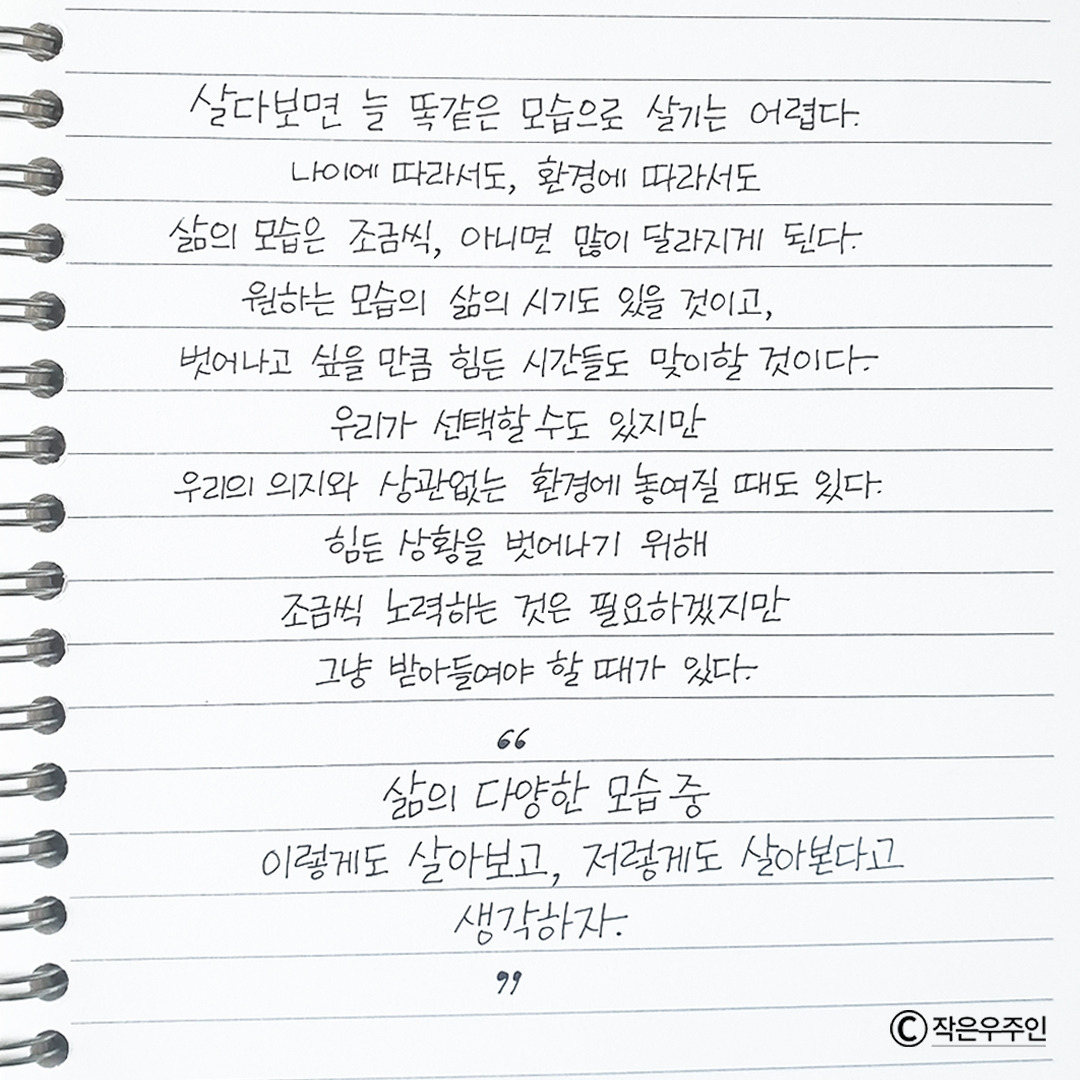 살다보면 늘 똑같은 모습으로 살기는 어렵다.
나이에 따라서도, 환경에 따라서도
삶의 모습은 조금씩, 아니면 많이 달라지게 된다.
원하는 모습의 삶의 시기도 있을 것이고,
벗어나고 싶을 만큼 힘든 시간들도 맞이할 것이다.
우리가 선택할 수도 있지만
우리의 의지와 상관없는 환경에 놓여질 때도 있다.
힘든 상황을 벗어나기 위해
조금씩 노력하는 것은 필요하겠지만
그냥 받아들여야 할 때가 있다.
“
삶의 다양한 모습 중
이렇게도 살아보고, 저렇게도 살아본다고
생각하자.
”
ⓒ작은우주인